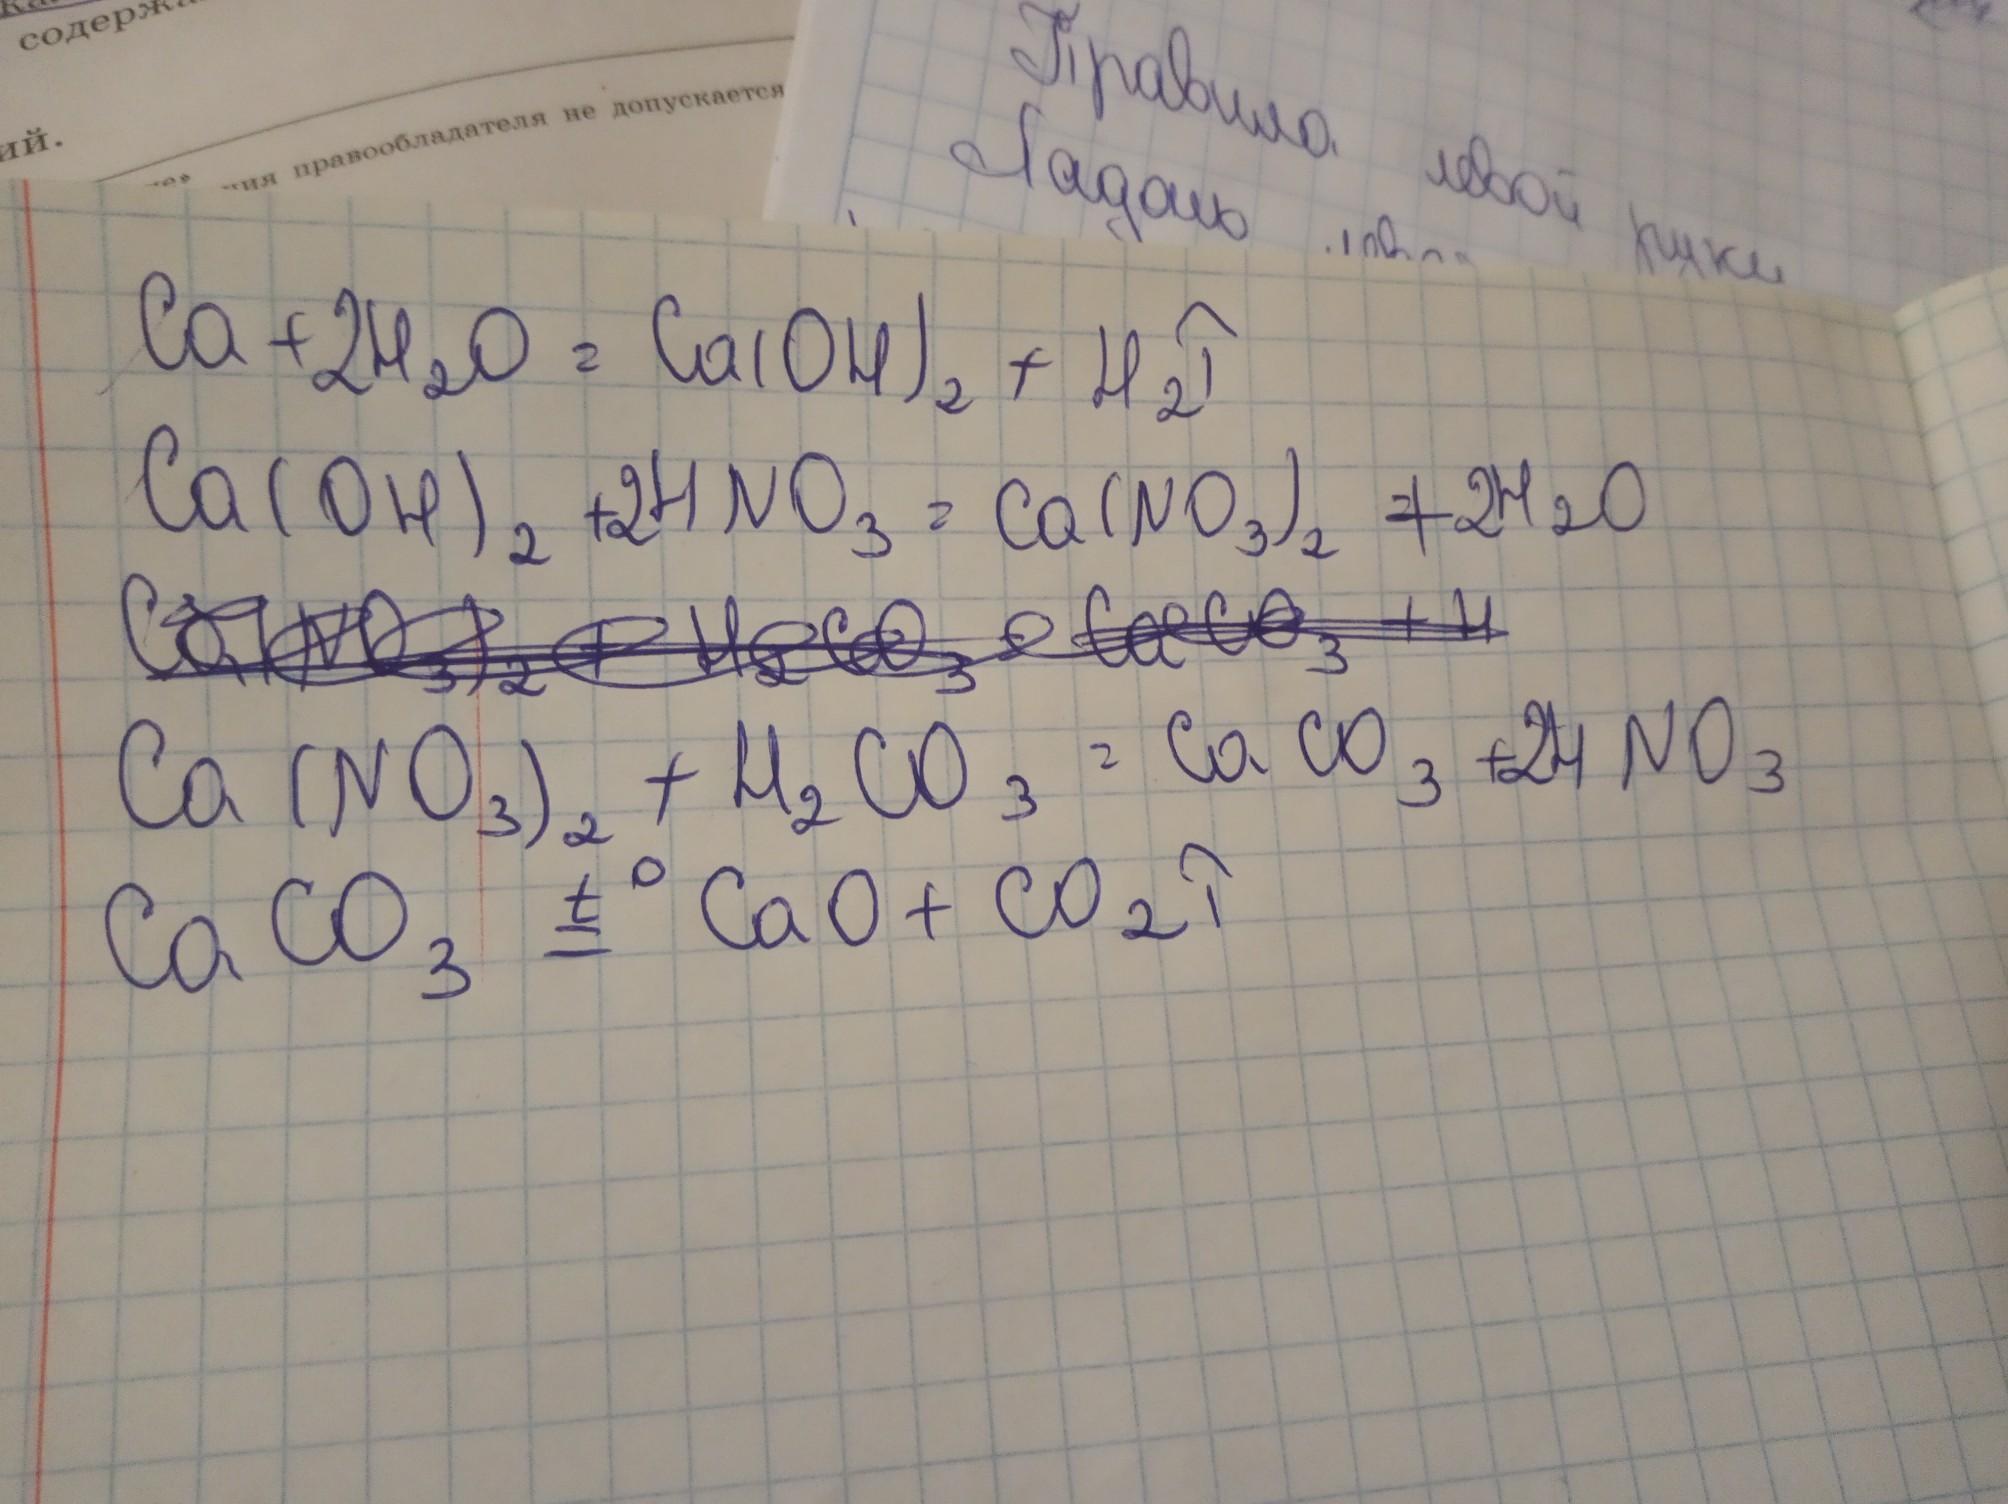 содерж
ий.
ния правообладателя не допускается
Правила левой руки
Ладонь
Ca + 2H₂O = Ca(OH)₂ + H₂↑
Ca(OH)₂ + 2HNO₃ = Ca(NO₃)₂ + 2H₂O
Ca(NO₃)₂ + H₂CO₃ = CaCO₃ + H
Ca(NO₃)₂ + H₂CO₃ = CaCO₃ + 2HNO₃
CaCO₃ =t° CaO + CO₂↑